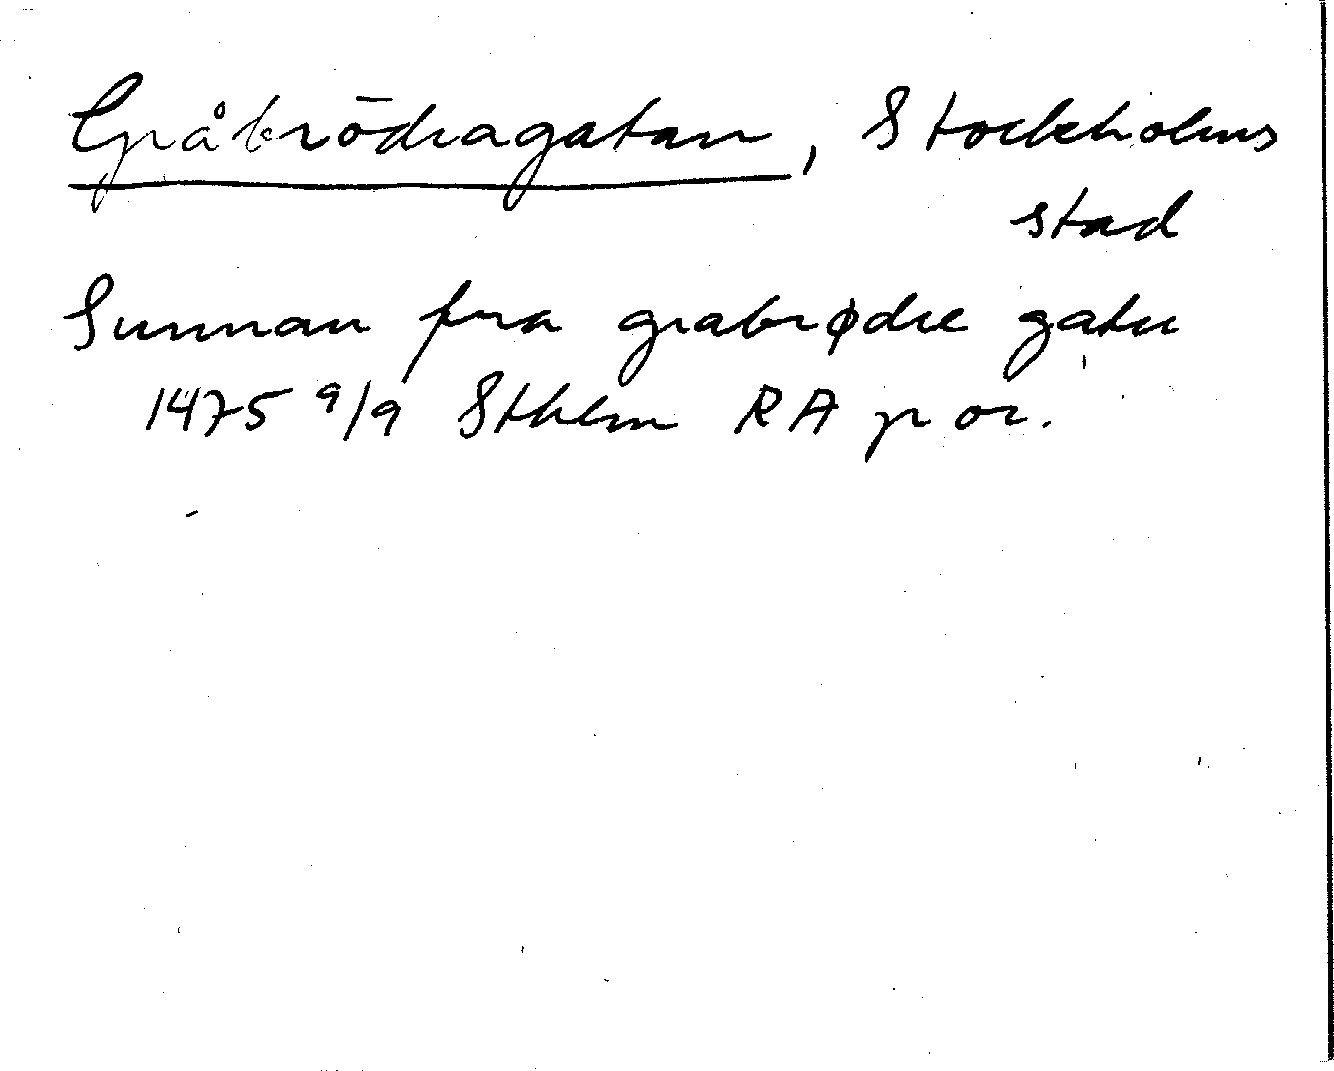 Gråbrödragatan, Stockholms
stad
Sunnan fra grabrødre gatu
1475 9/9 Sthlm RA p or.